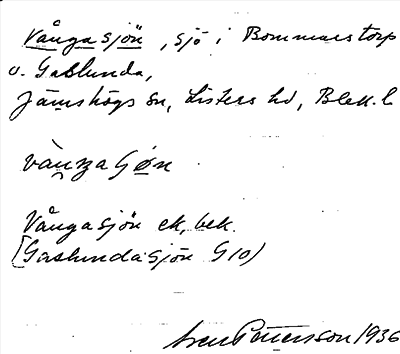 Vångasjön, sjö i Bommarstorp
o. Gaslunda,
Jämshögs sn, Listers hd, Blek. l
vàŋgaʃøn
Vångasjön ek, bek.
[Gaslundasjön G10)
Sven Pettersson 1936